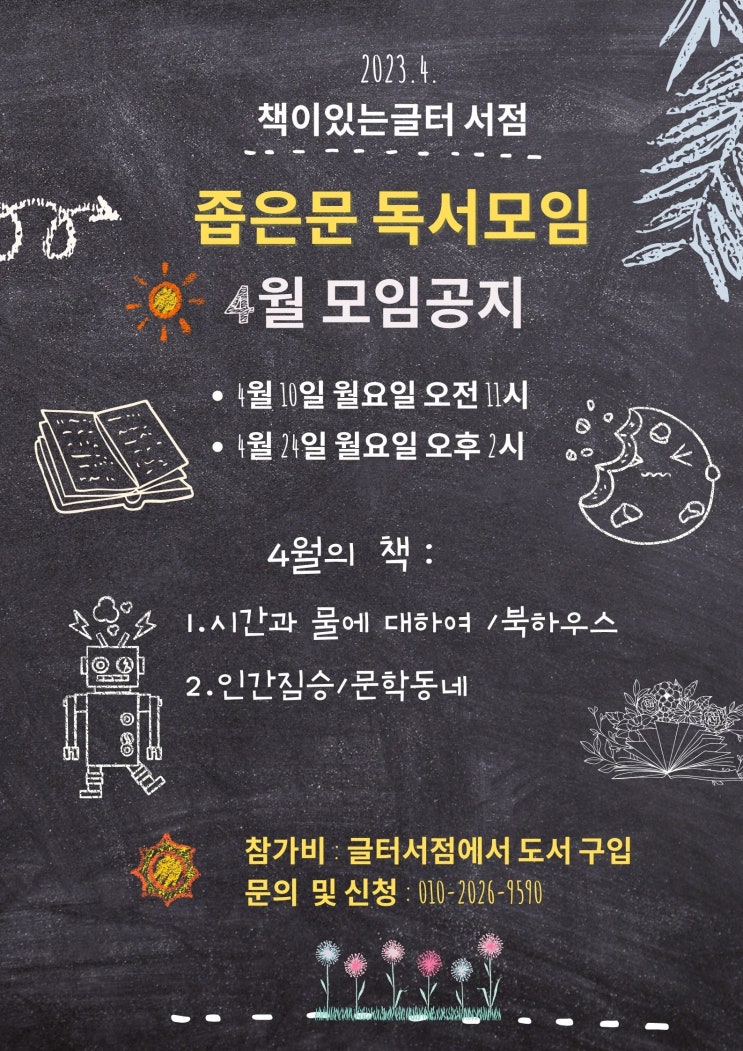 2023.4.
책이있는글터 서점
좁은문 독서모임
4월 모임공지
• 4월 10일 월요일 오전 11시
• 4월 24일 월요일 오후 2시
4월의 책 :
1.시간과 물에 대하여 /북하우스
2.인간짐승/문학동네
참가비 : 글터서점에서 도서 구입
문의 및 신청 : 010-2026-9590